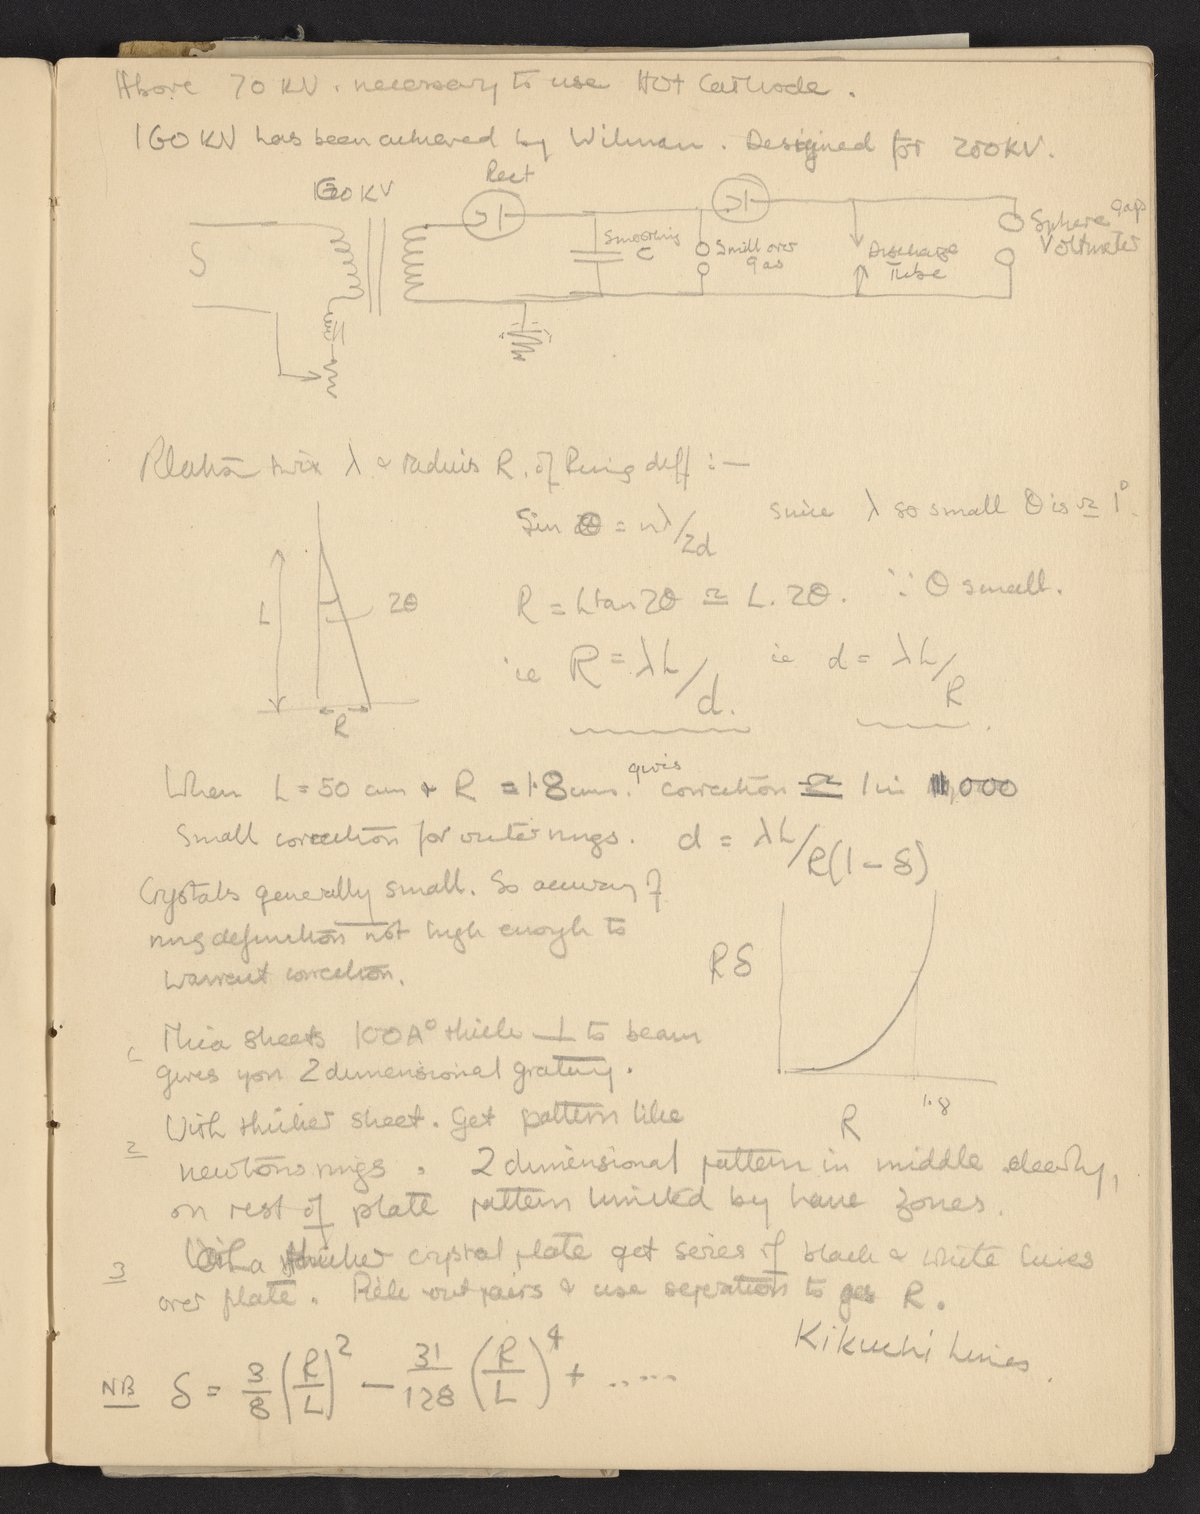 Above 70 KV. necessary to use Hot Cathode.
160 KV has been achieved by Wilman. Designed for 200 KV.
KV
Rect
S
Smoothing
C
Spill over
gap
Discharge
Tube
Sphere gaps
Voltmeter
Relation twix λ & radius R. of Ring diff :—
Sin θ = nλ/2d since λ so small θ is ≃ 1°.
L
2θ
R
R = L tan 2θ ≃ L. 2θ. ∵ θ small.
ie R = λL/d. ie d = λL/R
When L = 50 cm & R = 1·8 cms. gives correction ≃ 1 in 1,000
Small correction for outer rings. d = λL/R(1 − δ)
Crystals generally small. So accuracy of
ring definition not high enough to
warrant correction.
Rδ
R
1·8
1 Mica sheets 100A° thick ⊥ to beam
gives you 2 dimensional grating.
2 With thicker sheet. Get pattern like
newtons rings. 2 dimensional pattern in middle clearly,
on rest of plate pattern limited by Laue zones.
3 With a thicker crystal plate get series of black & white lines
over plate. Pick out pairs & use seperation to get R.
Kikuchi Lines.
NB δ = 3/8 (R/L)² − 31/128 (R/L)⁴ + ......